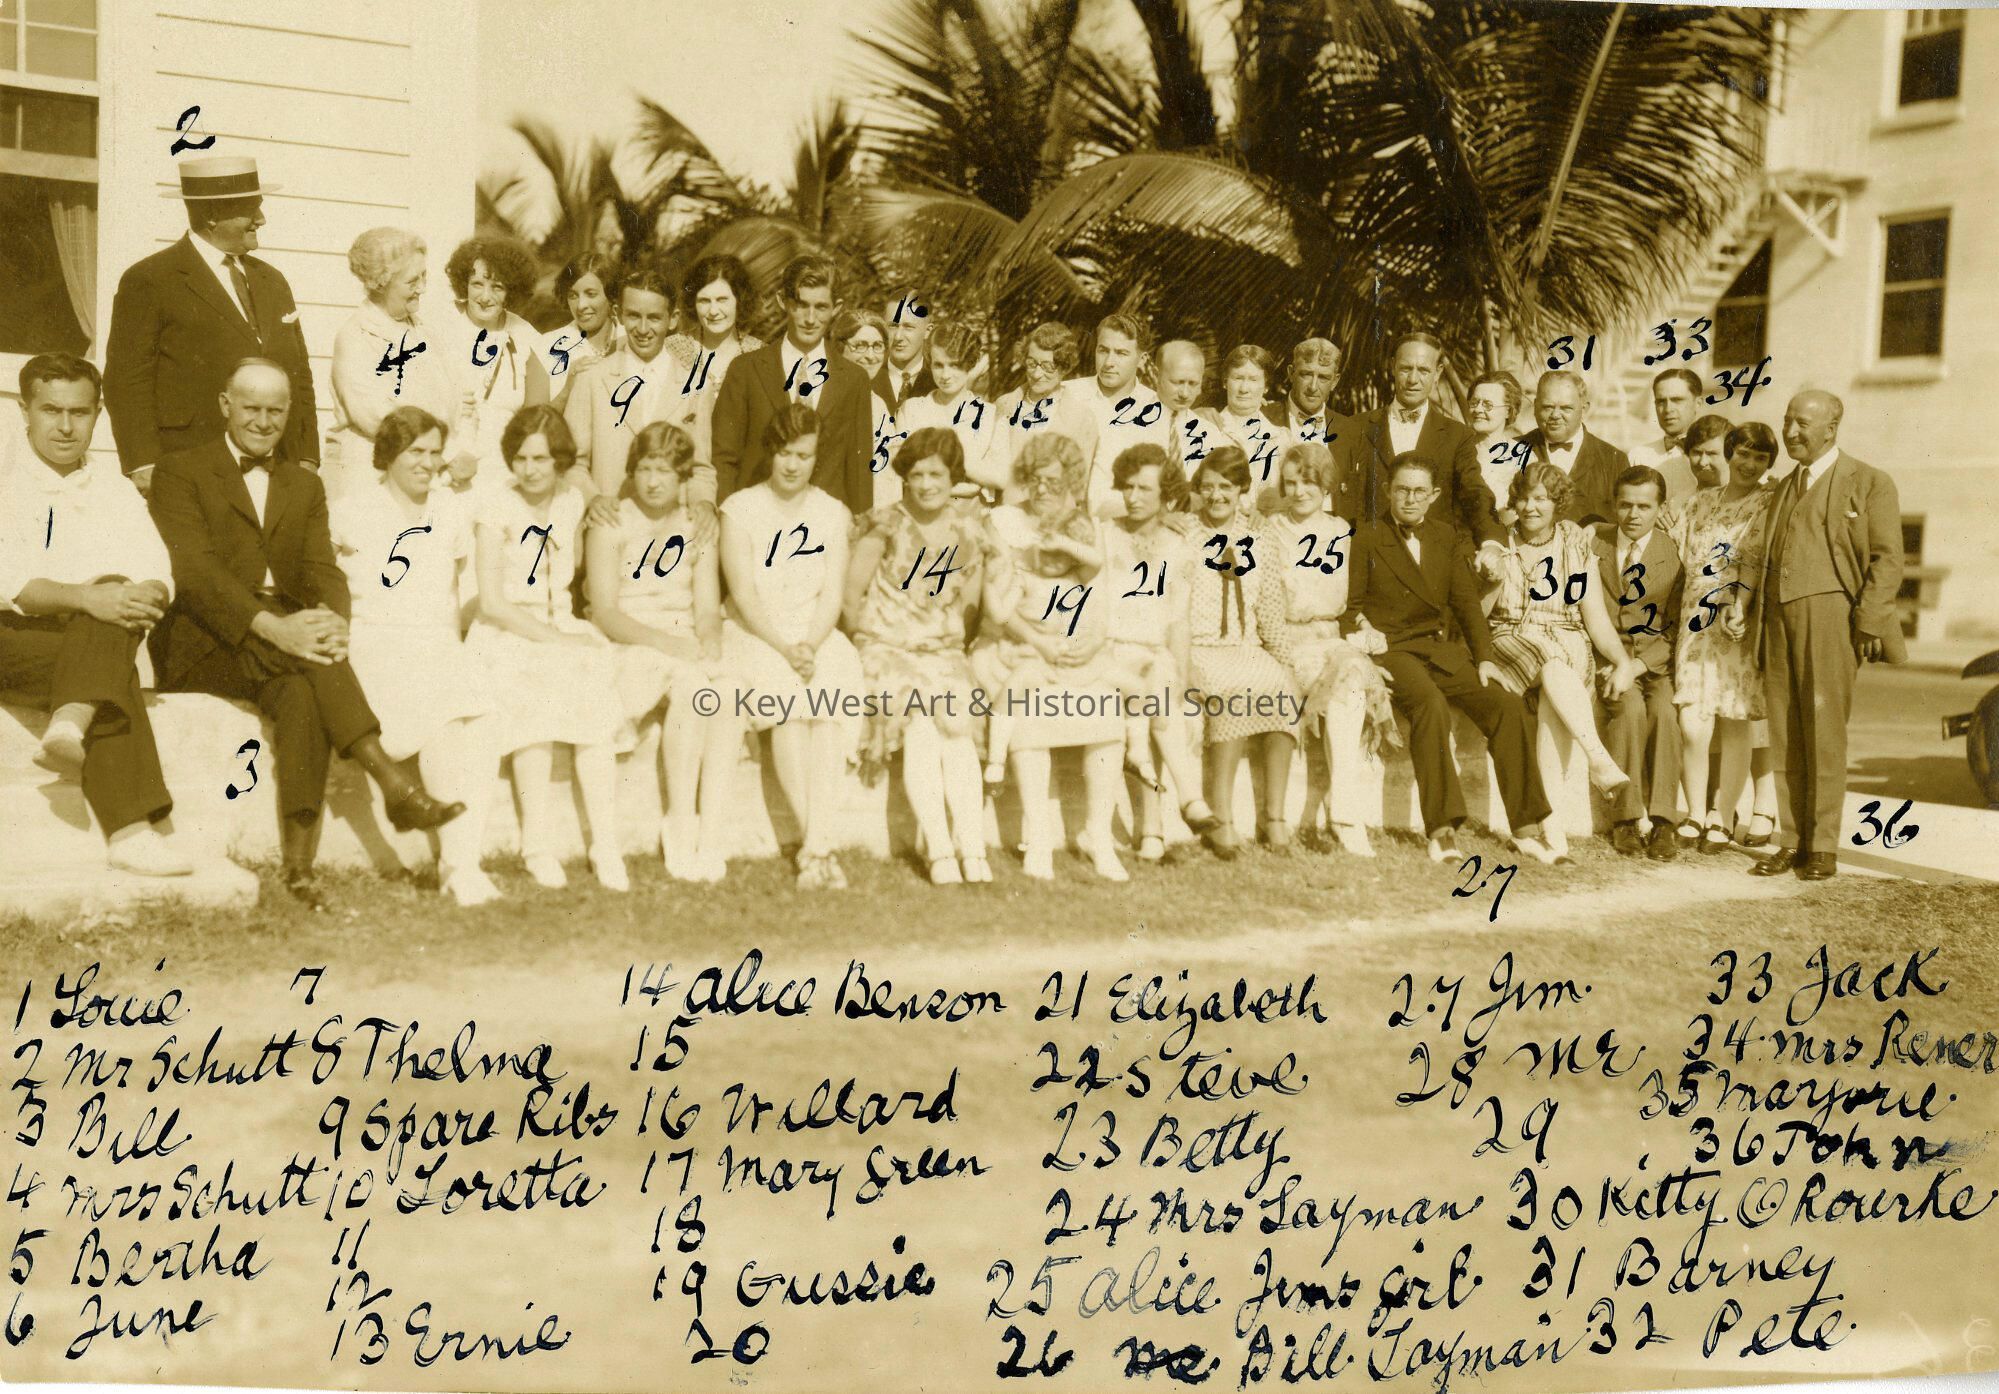 2
4
6
8
9
11
13
16
15
17
18
20
22
24
26
31
33
34
29
1
5
7
10
12
14
19
21
23
25
30
32
35
© Key West Art & Historical Society
3
36
27
1 Louie
2 Mr Schutt
3 Bill
4 Mrs Schutt
5 Bertha
6 June
7
8 Thelma
9 Spare Ribs
10 Loretta
11
12
13 Ernie
14 Alice Benson
15
16 Willard
17 Mary Green
18
19 Gussie
20
21 Elizabeth
22 Steve
23 Betty
24 Mrs Layman
25 Alice Jims Girl
26 Bill Layman
27 Jim
28 ME
29
30 Kitty O Rourke
31 Barney
32 Pete
33 Jack
34 Mrs Rener
35 Marjorie
36 John